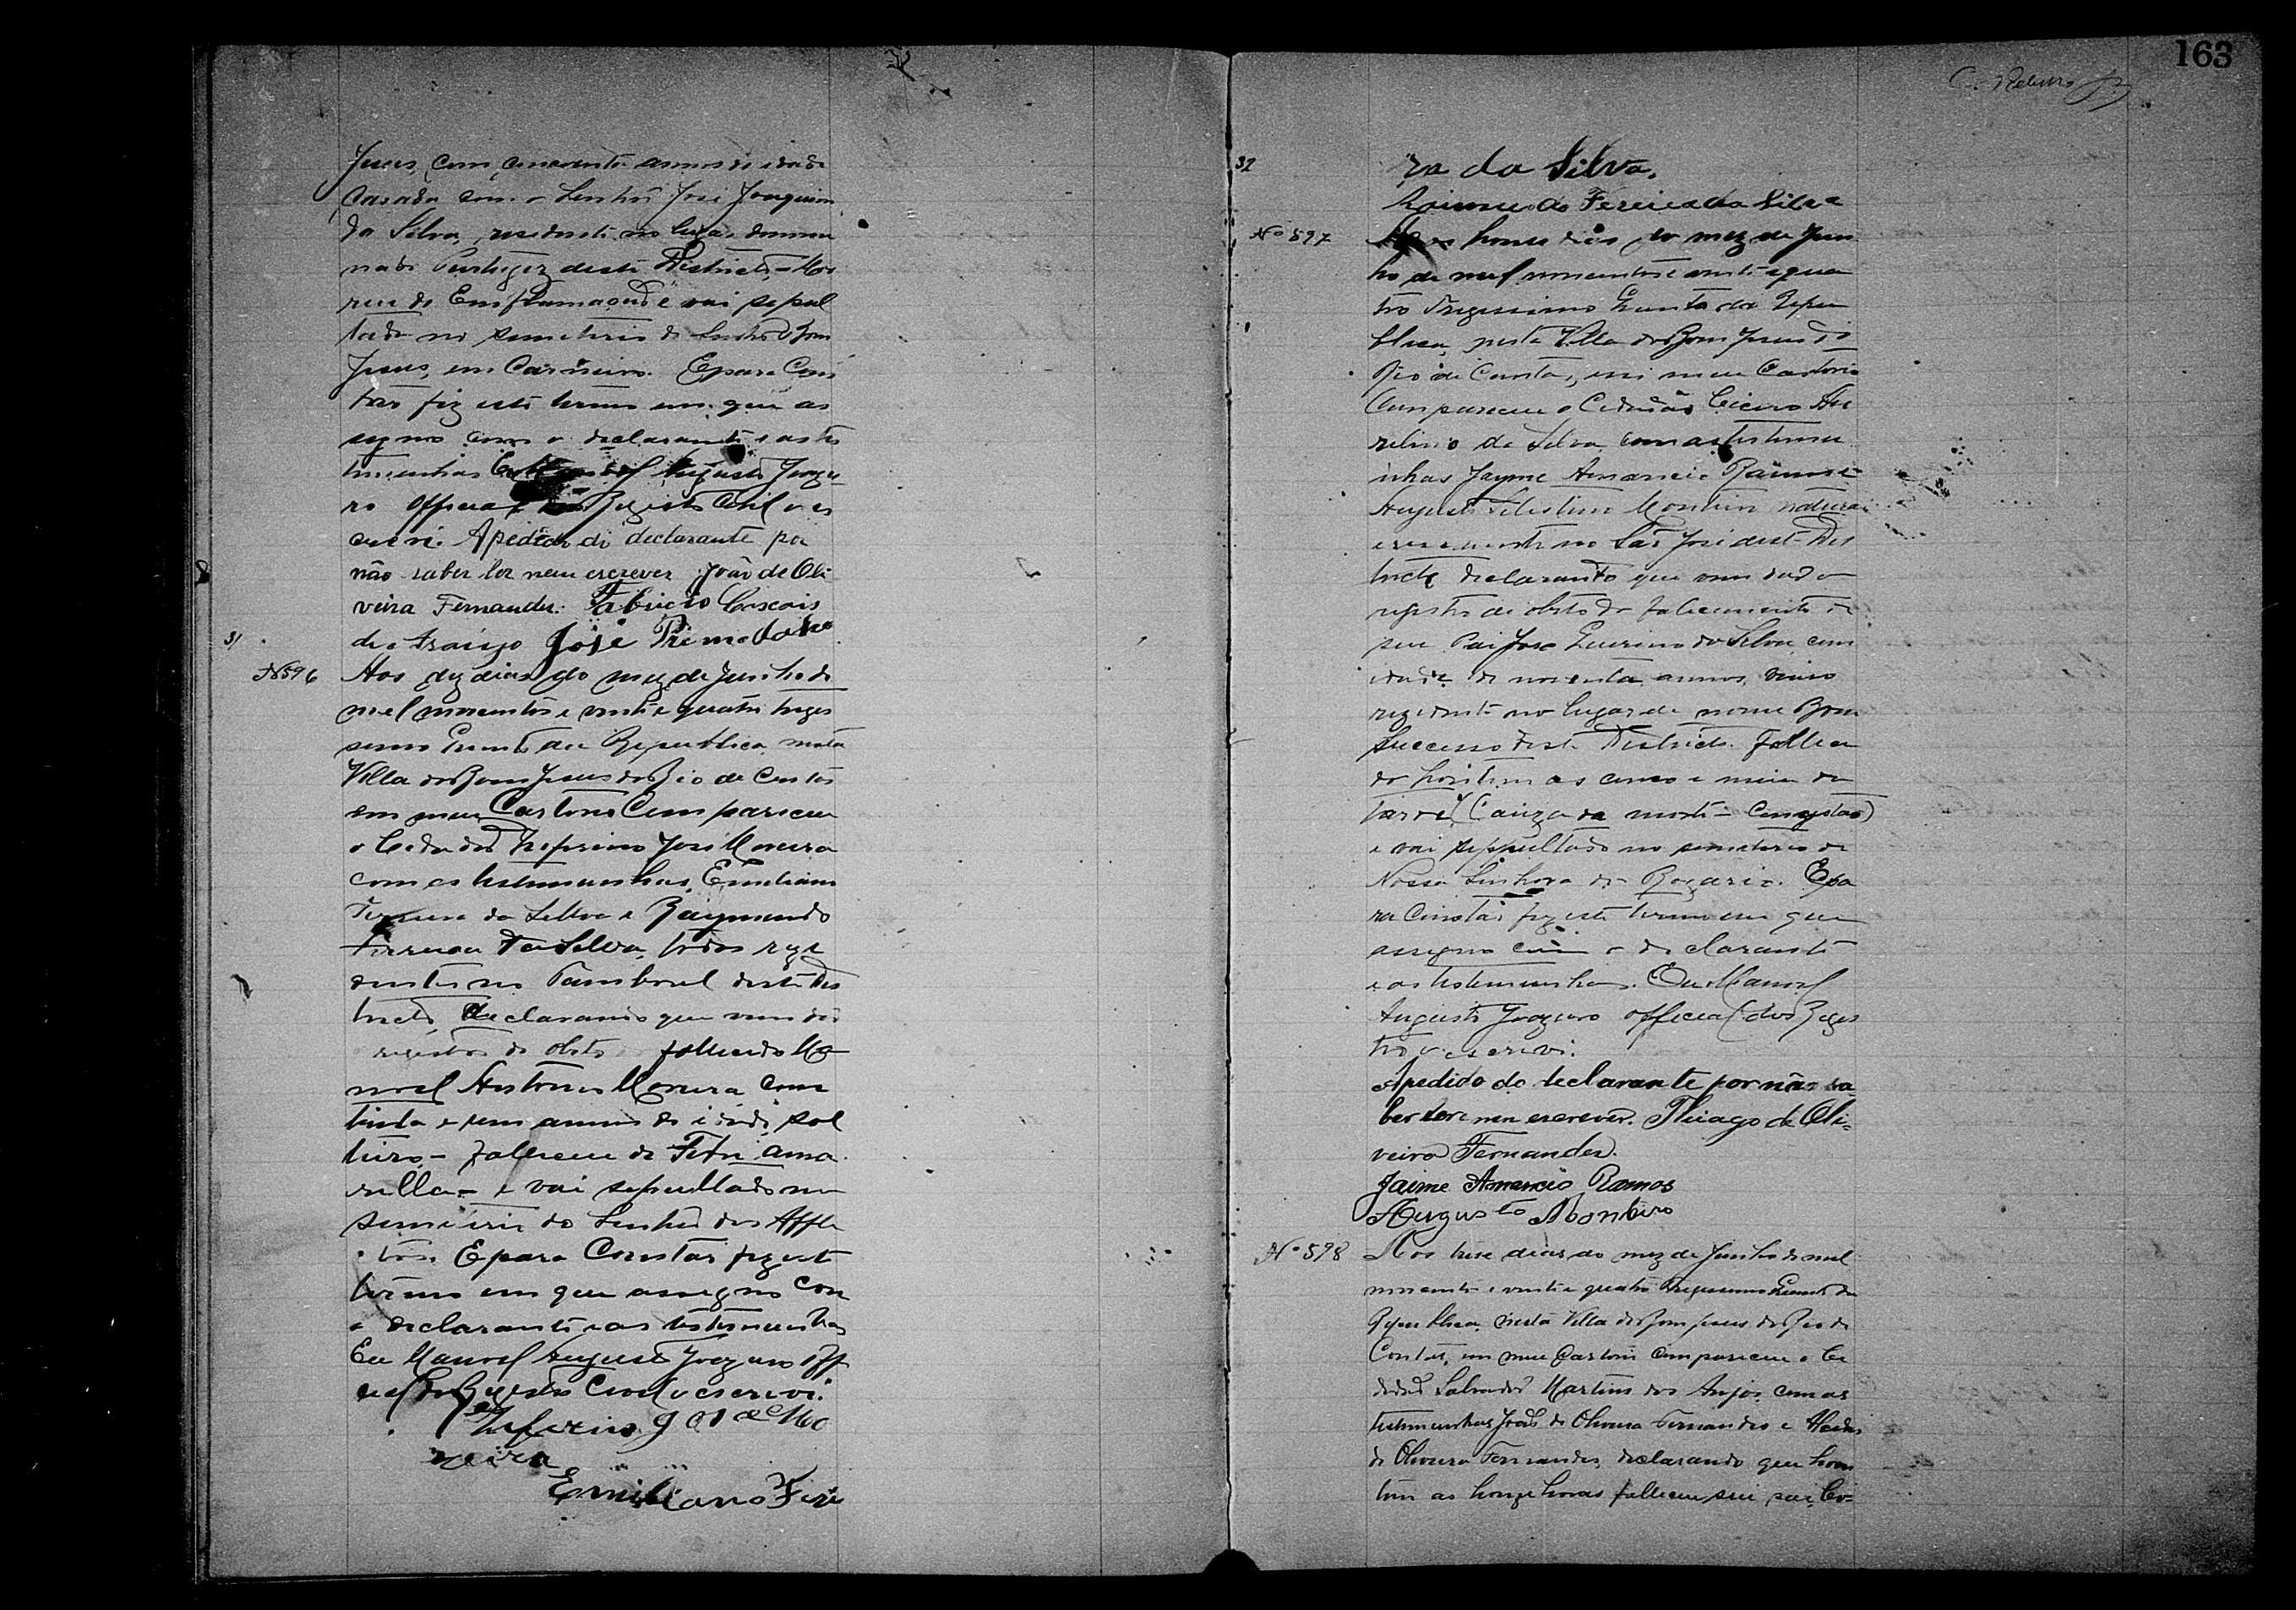 163
Jesus, com cincoenta annos de idade
casada com o Senhor José Joaquim
da Silva, residente no lugar denomi
nado deste Districto - Mor
reu de Emflamação e vai sepul
tada no semeterio do Senhor Bom
Jesus, em Carneiro. E para Cons
tar fiz este termo em que as
signo com o declarante e as tes
timunhas Eu Manoel Augusto Joazei
ro Official do Registo Civil o es
crevi. Apedido do declarante por
não saber ler nem escrever João de Oli
veira Fernandes. Fabricio Cascais
de Araujo José Primo
31
N 596
Aos dez dias do mez de Junho de
mil novecentos e vinte e quatro triges
simo quinto da Republica nesta
Villa do Bom Jesus do Rio de Contas
em meu Cartorio Compareceu
o Cidadão Zeferino José Moreira
com as testemunhas, Emiliano
Ferreira da Silva e Raymundo
Ferreira da Silva, todos rezi
dentes no Tamboril deste Dis
tricto, declarando que vem dar
registro de obito fallecido Ma
noel Antonio Moreira com
trinta e um annos de idade, sol
teiro - falleceu de Febre ama
rella - e vai sepultado no
semeterio do Senhor dos Affli
tos. E para Constar fiz est
termo em que assigno com
o declarante e as testemunhas
Eu Manoel Augusto Joazeiro Offi
cial do Registo Civil o escrevi.
Zeferino José Mo
reira
Emiliano Ferei
32
ra da Silva.
Raimundo Fereira da Silva
No 597
Aos honze dias do mez de Jun
ho de mil novecentos e vinte e qua
tro Trigessimo Quinto da Repu
blica, nesta Villa do Bom Jesus do
Rio de Contas, em meu Cartorio
Compareceu o Cidadão Cicero Au
relino da Silva, com as testemu
nhas Jayme Amancio Ramos e
Augusto Celestino Monteiro naturaes
e residente no São José deste Dis
tricto declarando que vem dar o
registro de obito do falecimento de
seu Pai José Guerino da Silva com
idade de noventa annos, viuvo
rezidente no lugar de nome Bom
Successo deste Districto. Falleci
do hontem as cinco e meia da
tarde (Cauza da morte - Congestão)
e vai seppultado no semeterio de
Nossa Senhora do Rozario. E pa
ra Constar fiz este termo em que
assigno com o declarante
e as testemunhas. Eu Manoel
Augusto Joazeiro official do Regis
tro o escrevi.
Apedido do declarante por não sa
ber lere nem escrever. Thiago de Oli=
veira Fernandes.
Jaime Amancio Ramos
Augusto Monteiro
No 598
Aos trese dias do mez de Junho de mil
novecentos e vinte e quatro Trigessimo Quinto da
Republica, nesta Villa do Bom Jesus do Rio de
Contas, em meu Cartorio compareceu o Ci
dadão Salvador Martins dos Anjos com as
testemunhas João de Oliveira Fernandes e
de Oliveira Fernandes, declarando que hon
tem as honze horas falleceu seu pai